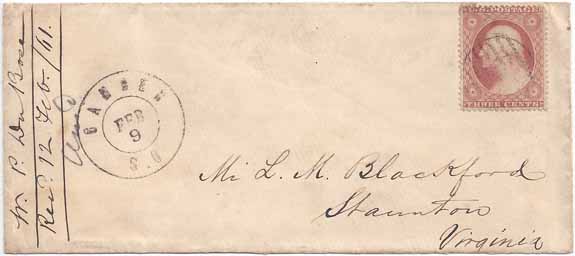 W. P. Du Bose
Recd. 12 Feb. /61.
CAMDEN
FEB
9
S.C
THREE CENTS
Mi L. M. Blackford
Staunton
Virginia